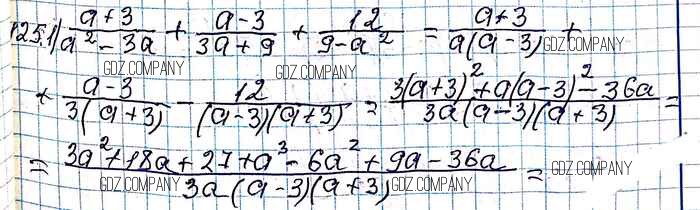 125.1) \frac{a+3}{a^2-3a} + \frac{a-3}{3a+9} + \frac{12}{9-a^2} = \frac{a+3}{a(a-3)} +
GDZ.COMPANY GDZ.COMPANY GDZ.COMPANY
+ \frac{a-3}{3(a+3)} - \frac{12}{(a-3)(a+3)} = \frac{3(a+3)^2+a(a-3)^2-36a}{3a(a-3)(a+3)} =
= \frac{3a^2+18a+27+a^3-6a^2+9a-36a}{3a(a-3)(a+3)} =
GDZ.COMPANY GDZ.COMPANY GDZ.COMPANY